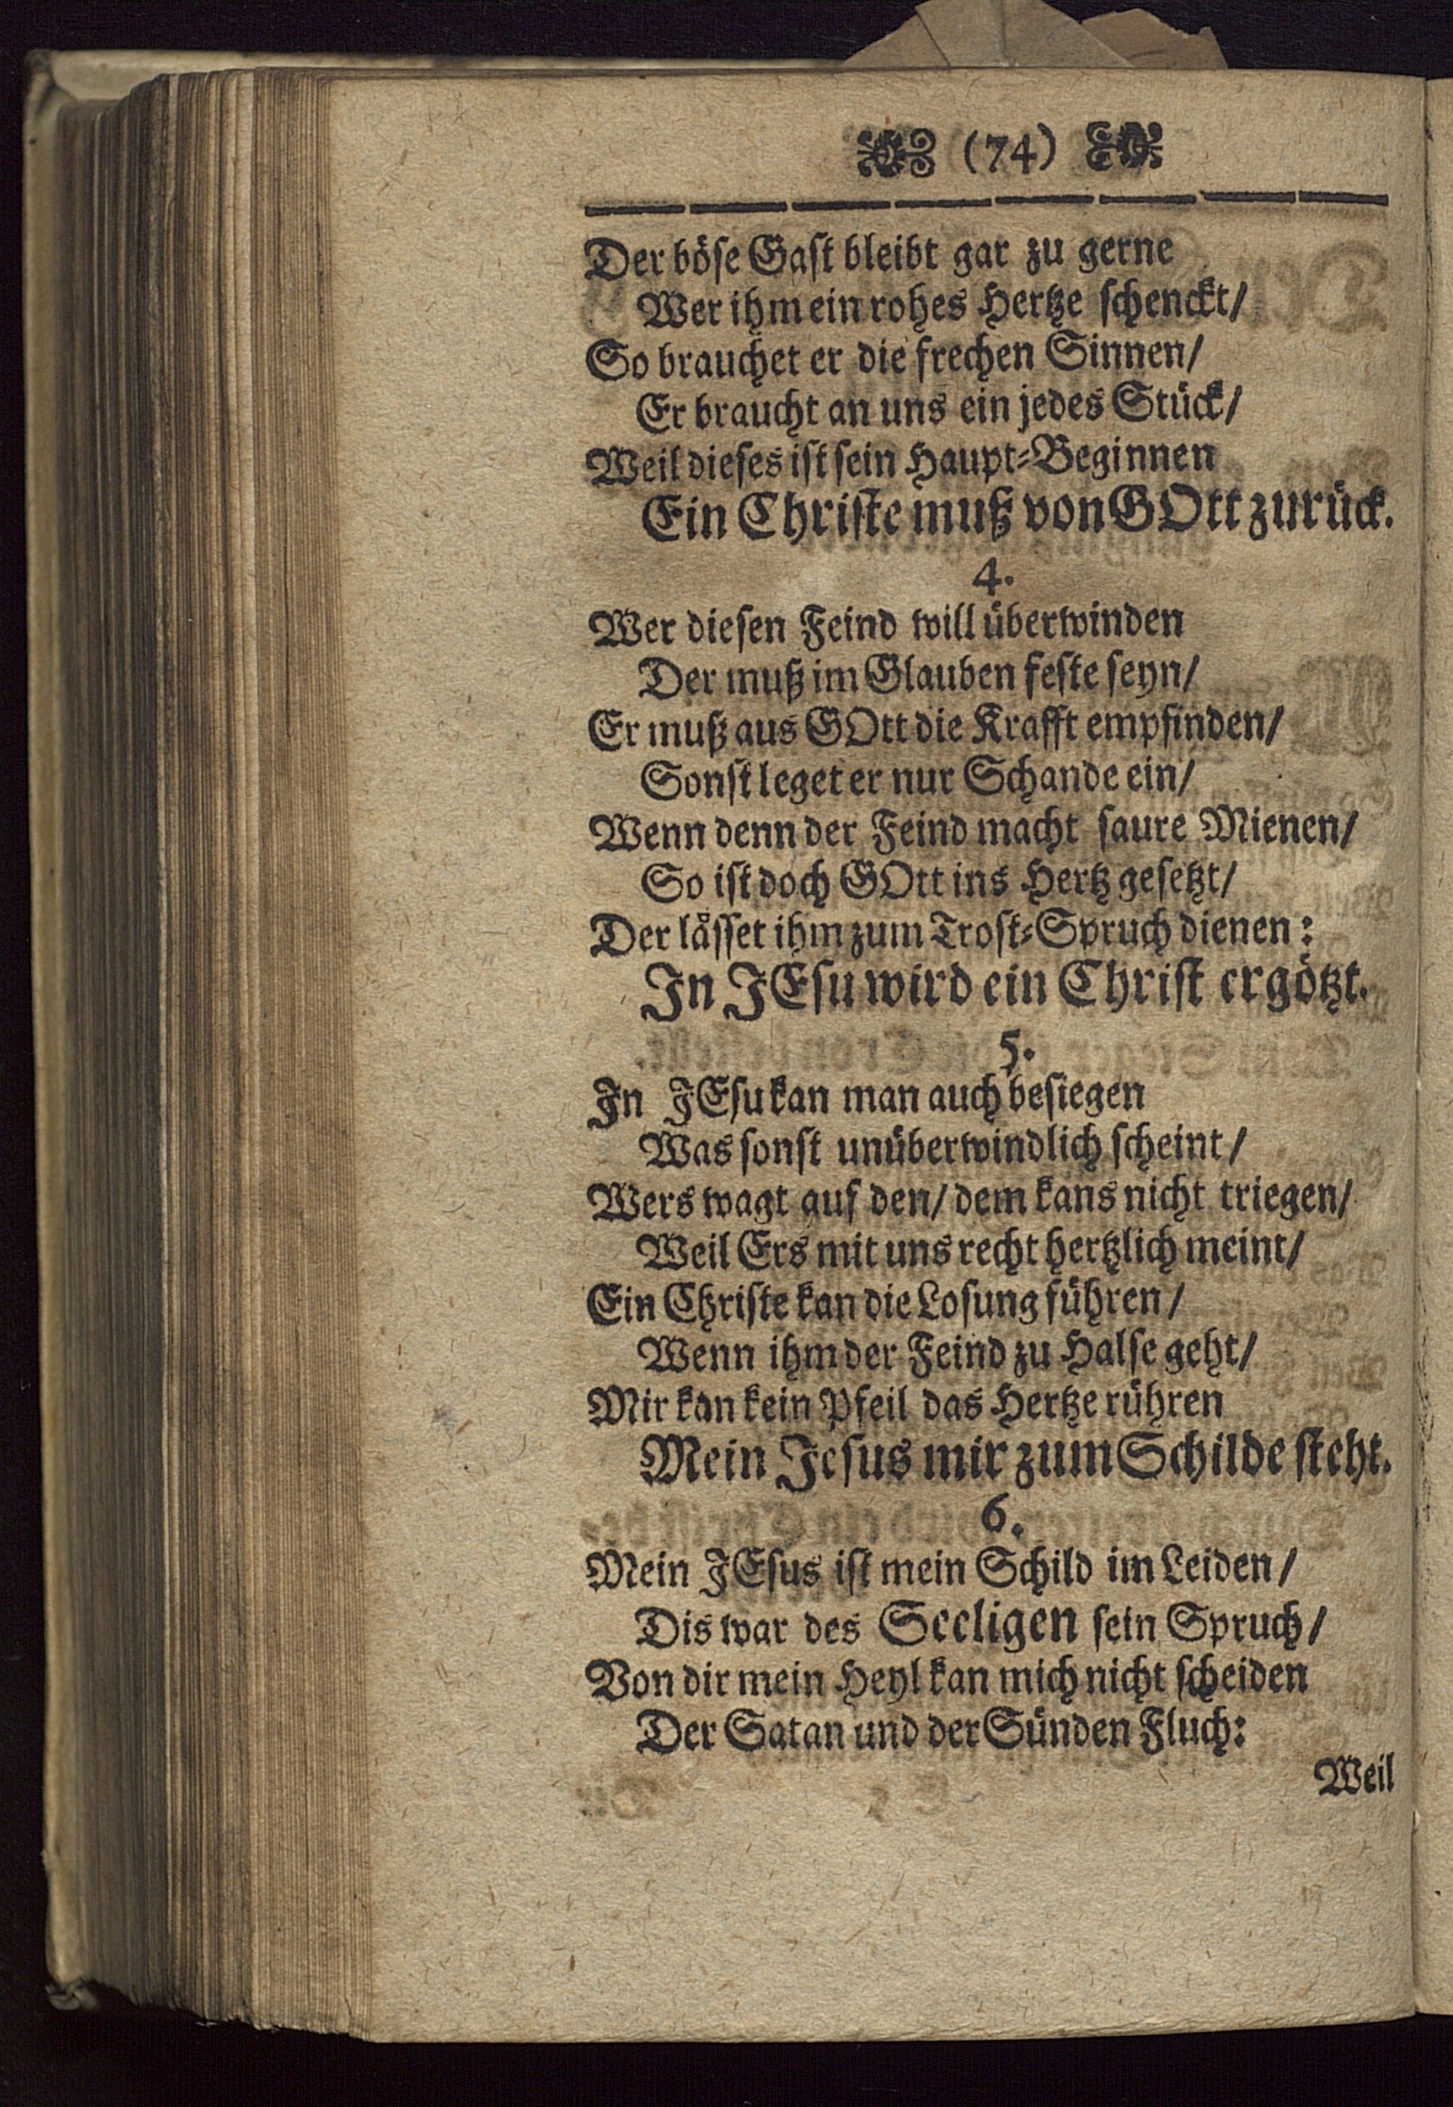 (74)
Der böse Gast bleibt gar zu gerne
Wer ihm ein rohes Hertze schenckt/
So brauchet er die frechen Sinnen/
Er braucht an uns ein jedes Stück/
Weil dieses ist sein Haupt-Beginnen
Ein Christe muß von GOtt zurück.
4.
Wer diesen Feind will überwinden
Der muß im Glauben feste seyn/
Er muß aus GOtt die Krafft empfinden/
Sonst leget er nur Schande ein/
Wenn denn der Feind macht saure Mienen/
So ist doch GOtt ins Hertz gesetzt/
Der lässet ihm zum Trost-Spruch dienen:
In JEsu wird ein Christ ergötzt.
5.
In JEsu kan man auch besiegen
Was sonst unüberwindlich scheint/
Wers wagt auf den/ dem kans nicht triegen/
Weil Ers mit uns recht hertzlich meint/
Ein Christe kan die Losung führen/
Wenn ihm der Feind zu Halse geht/
Mir kan kein Pfeil das Hertze rühren
Mein Jesus mir zum Schilde steht.
6.
Mein JEsus ist mein Schild im Leiden/
Dis war des Seeligen sein Spruch/
Von dir mein Heyl kan mich nicht scheiden
Der Satan und der Sünden Fluch:
Weil